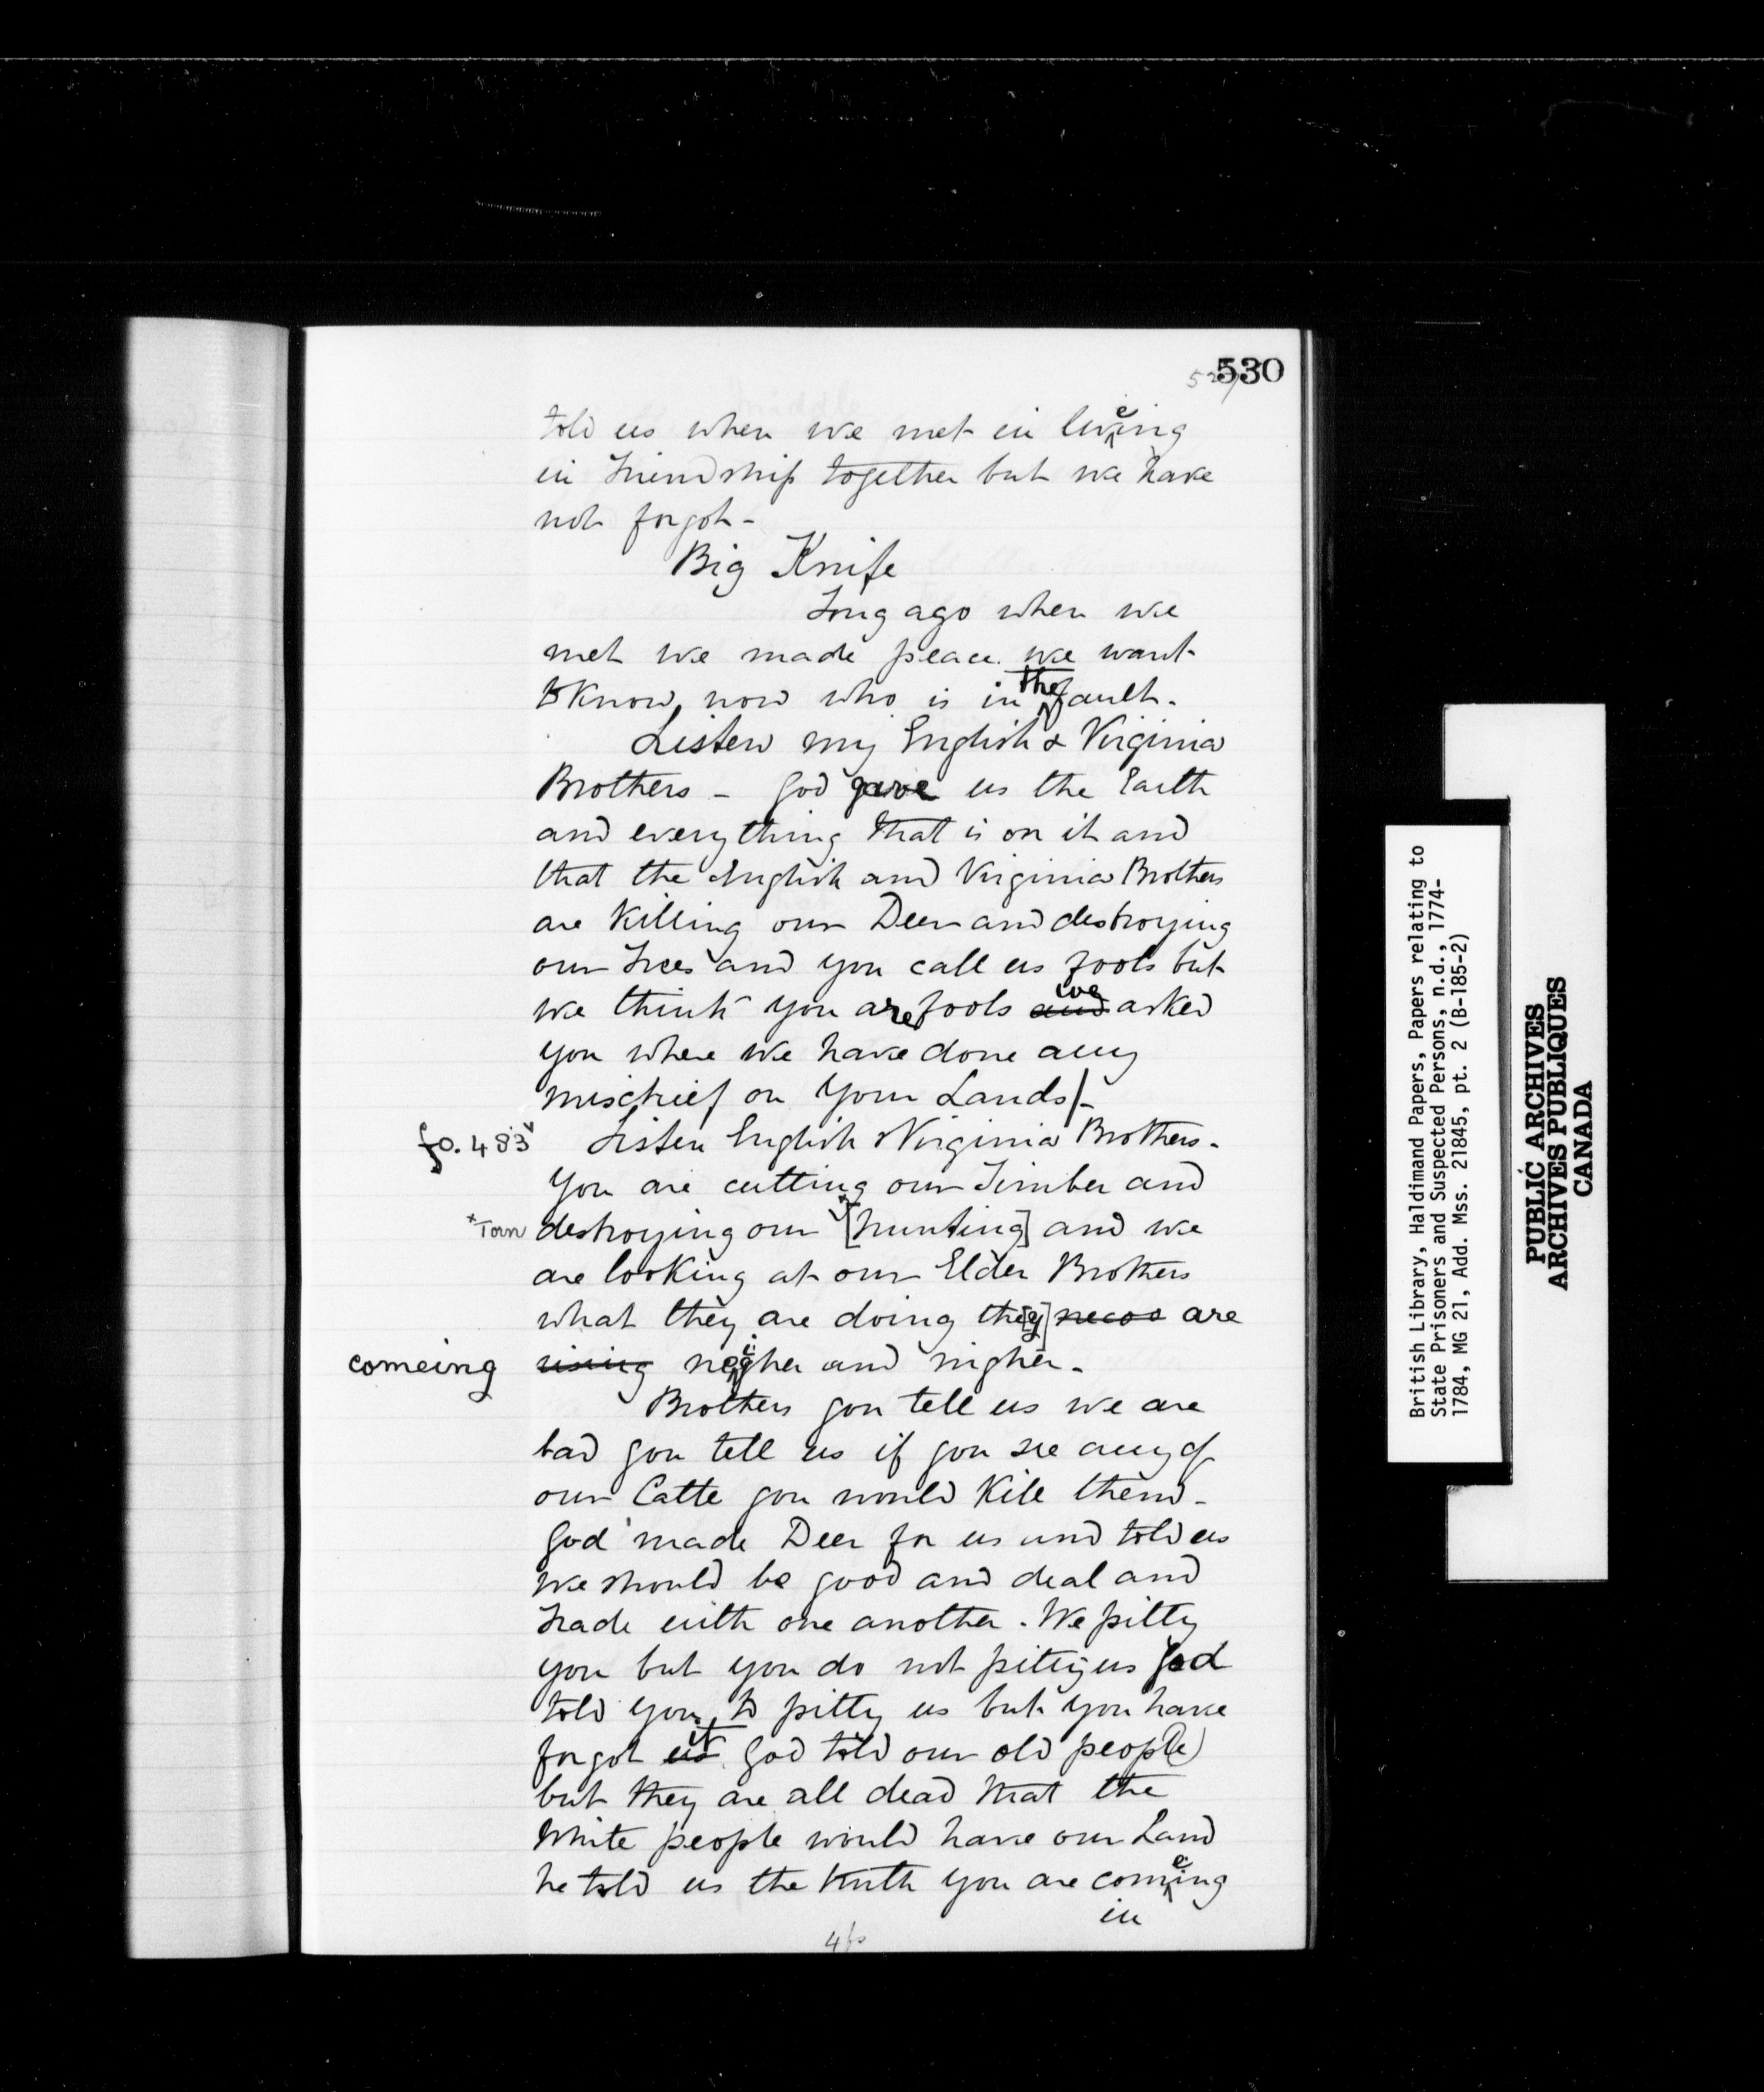 530
told us when we met in liveing
in Friendship together but we have
not forgot -
Big Knife
Long ago when we
met we made peace. we want
to Know, now who is in the fault.
Listen my English & Virginia
Brothers - God gave us the Earth
and everything that is on it and
that the English and Virginia Brothers
are Killing our Deer and destroying
our Trees and you call us fools but
we think you are fools and we asked
you where we have done any
mischief on Your Lands/-
fo. 483 Listen English & Virginia Brothers -
You are cutting our Timber and
x Torn destroying our x [hunting] and we
are looking at our Elder Brothers
what they are doing the[y] are
comeing rising nigher and nigher -
Brothers you tell us we are
bad you tell us if you see any of
our Catte you would Kile them -
God made Deer for us and told us
we should be good and deal and
trade with one another. We pitty
you but you do not pitty us God
told you to pitty us but you have
forgot us it God told our old people
but they are all dead that the
White people would have our Land
he told us the truth you are comeing
in
British Library, Haldimand Papers, Papers relating to
State Prisoners and Suspected Persons, n.d., 1774-
1784, MG 21, Add. Mss. 21845, pt. 2 (B-185-2)
PUBLIC ARCHIVES
ARCHIVES PUBLIQUES
CANADA